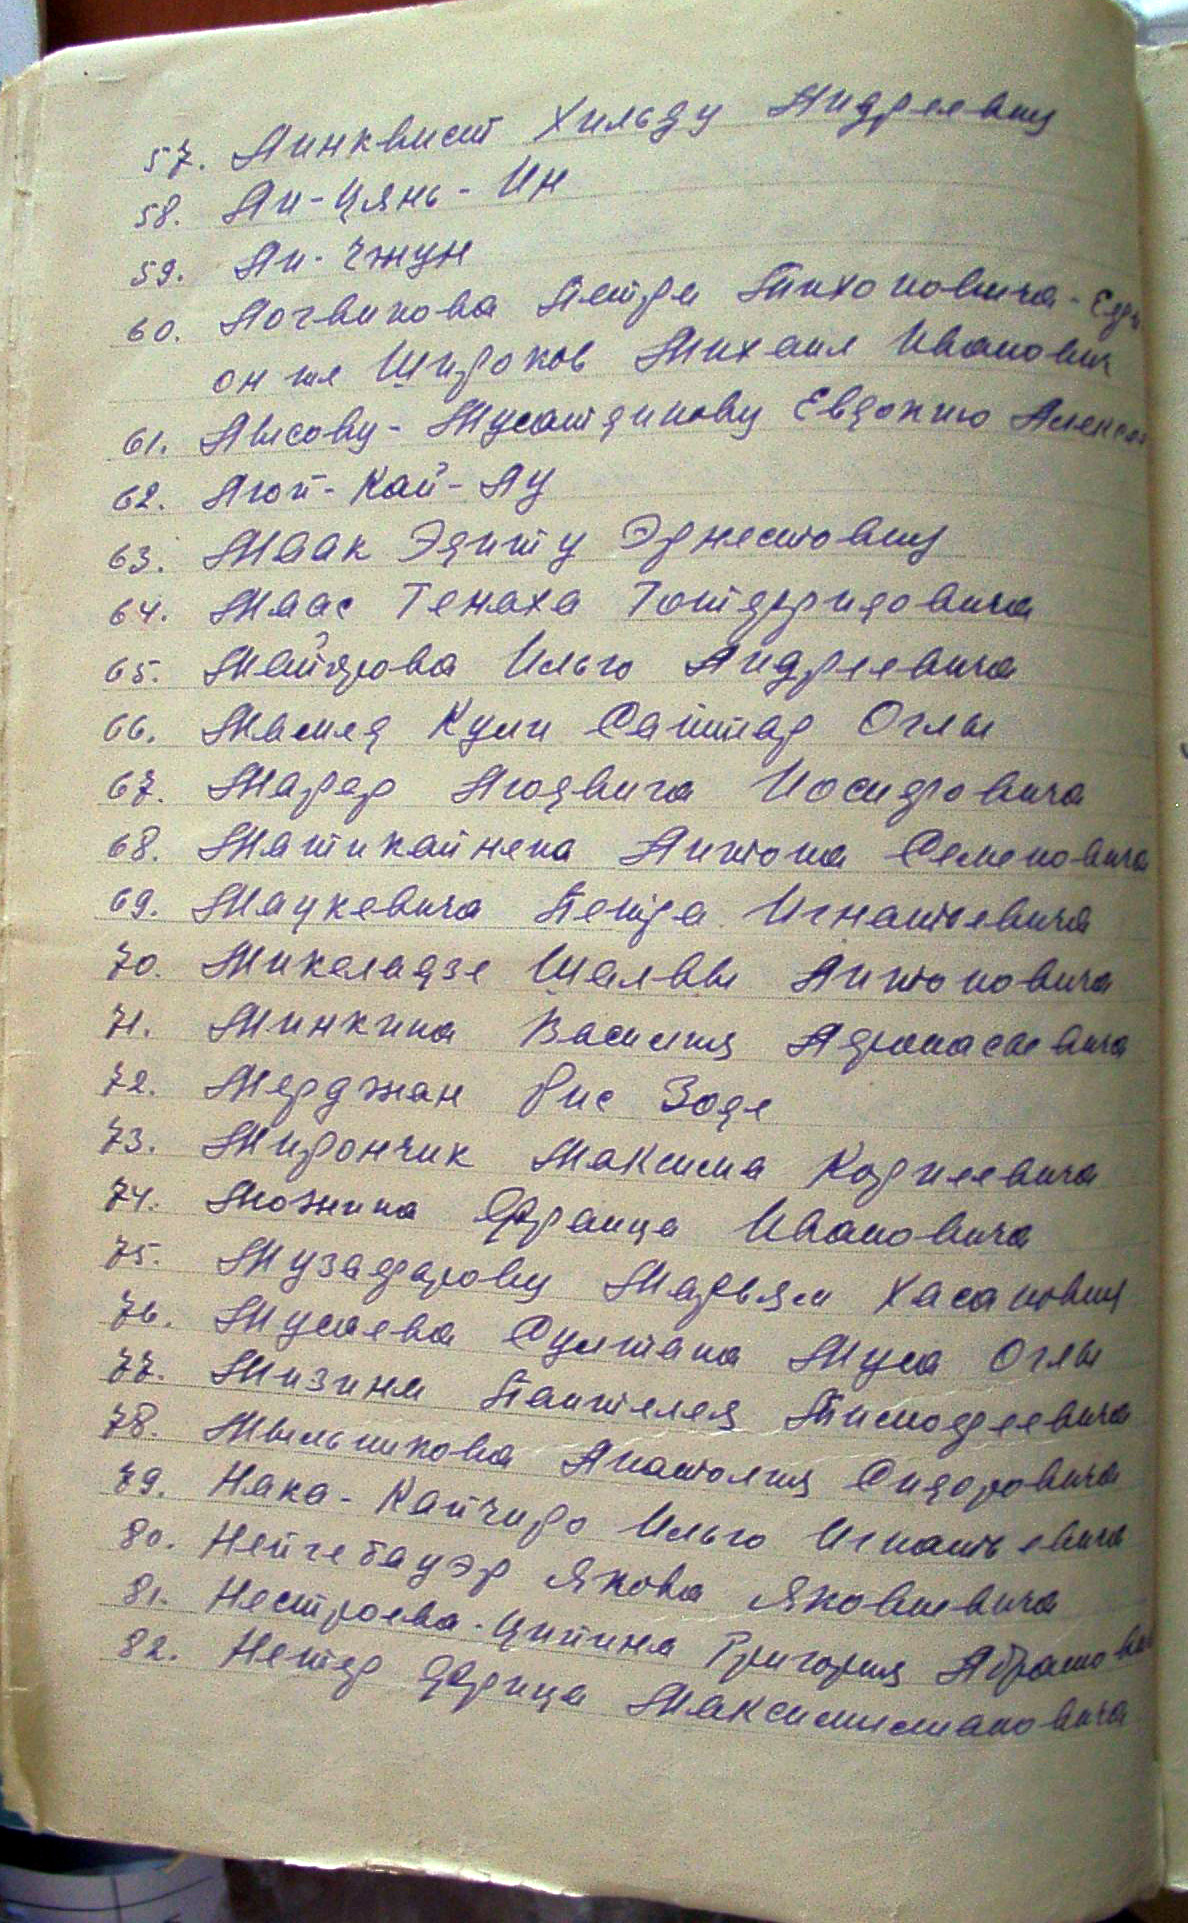 57. Линквист Хильду Андреевну
58. Ли-Цянь-Ин
59. Ли-Чжун
60. Логвинова Петра Тихоновича-
он же Широков Михаил Иванович
61. Лысову-Мусатдинову Евдокию
62. Люй-Кай-Лу
63. Маак Эдиту Эрнестовну
64. Маас Генаха Готфридовича
65. Майорова Илью Андреевича
66. Мамед Кули Саттар Оглы
67. Марер Людвига Иосифовича
68. Матикайнена Антона Семеновича
69. Мацкевича Петра Игнатьевича
70. Микеладзе Шалвы Антоновича
71. Минкина Василия Афанасьевича
72. Мерджан Рис Заде
73. Мирончик Максима Корнеевича
74. Можина Франца Ивановича
75. Музафарову Марьям Хасановну
76. Мусаева Султана Муса Оглы
77. Мизина Пантелея Тимофеевича
78. Мыльникова Анатолия Сидоровича
79. Нака-Кайчиро Илью Игнатьевича
80. Нейгебауэр Якова Яковлевича
81. Нестроева-Цыпина Григория
82. Нетер Фрица Максимилиановича